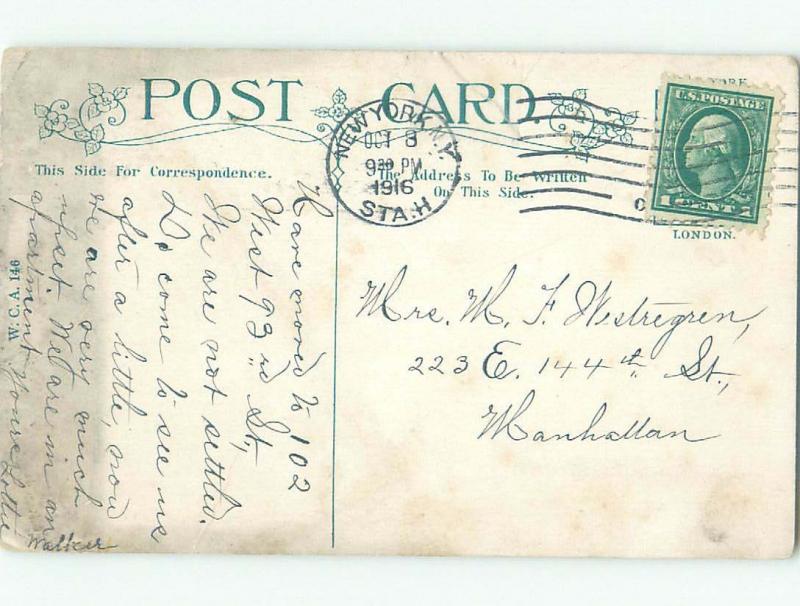 POST CARD.
This Side For Correspondence.
The Address To Be Written
On This Side.
NEW YORK, N.Y.
OCT 8
930 PM
1916
STA. H
U.S. POSTAGE
1 CENT 1
YORK
LONDON.
W. C. A. 146
Have moved to 102
West 93rd St,
We are not settled.
Do come to see us
after a little, now
we are very much
upset. We are in an
apartment. Yours Lottie
Walker
Mrs. M. F. Westregren,
223 E. 144th St.,
Manhattan